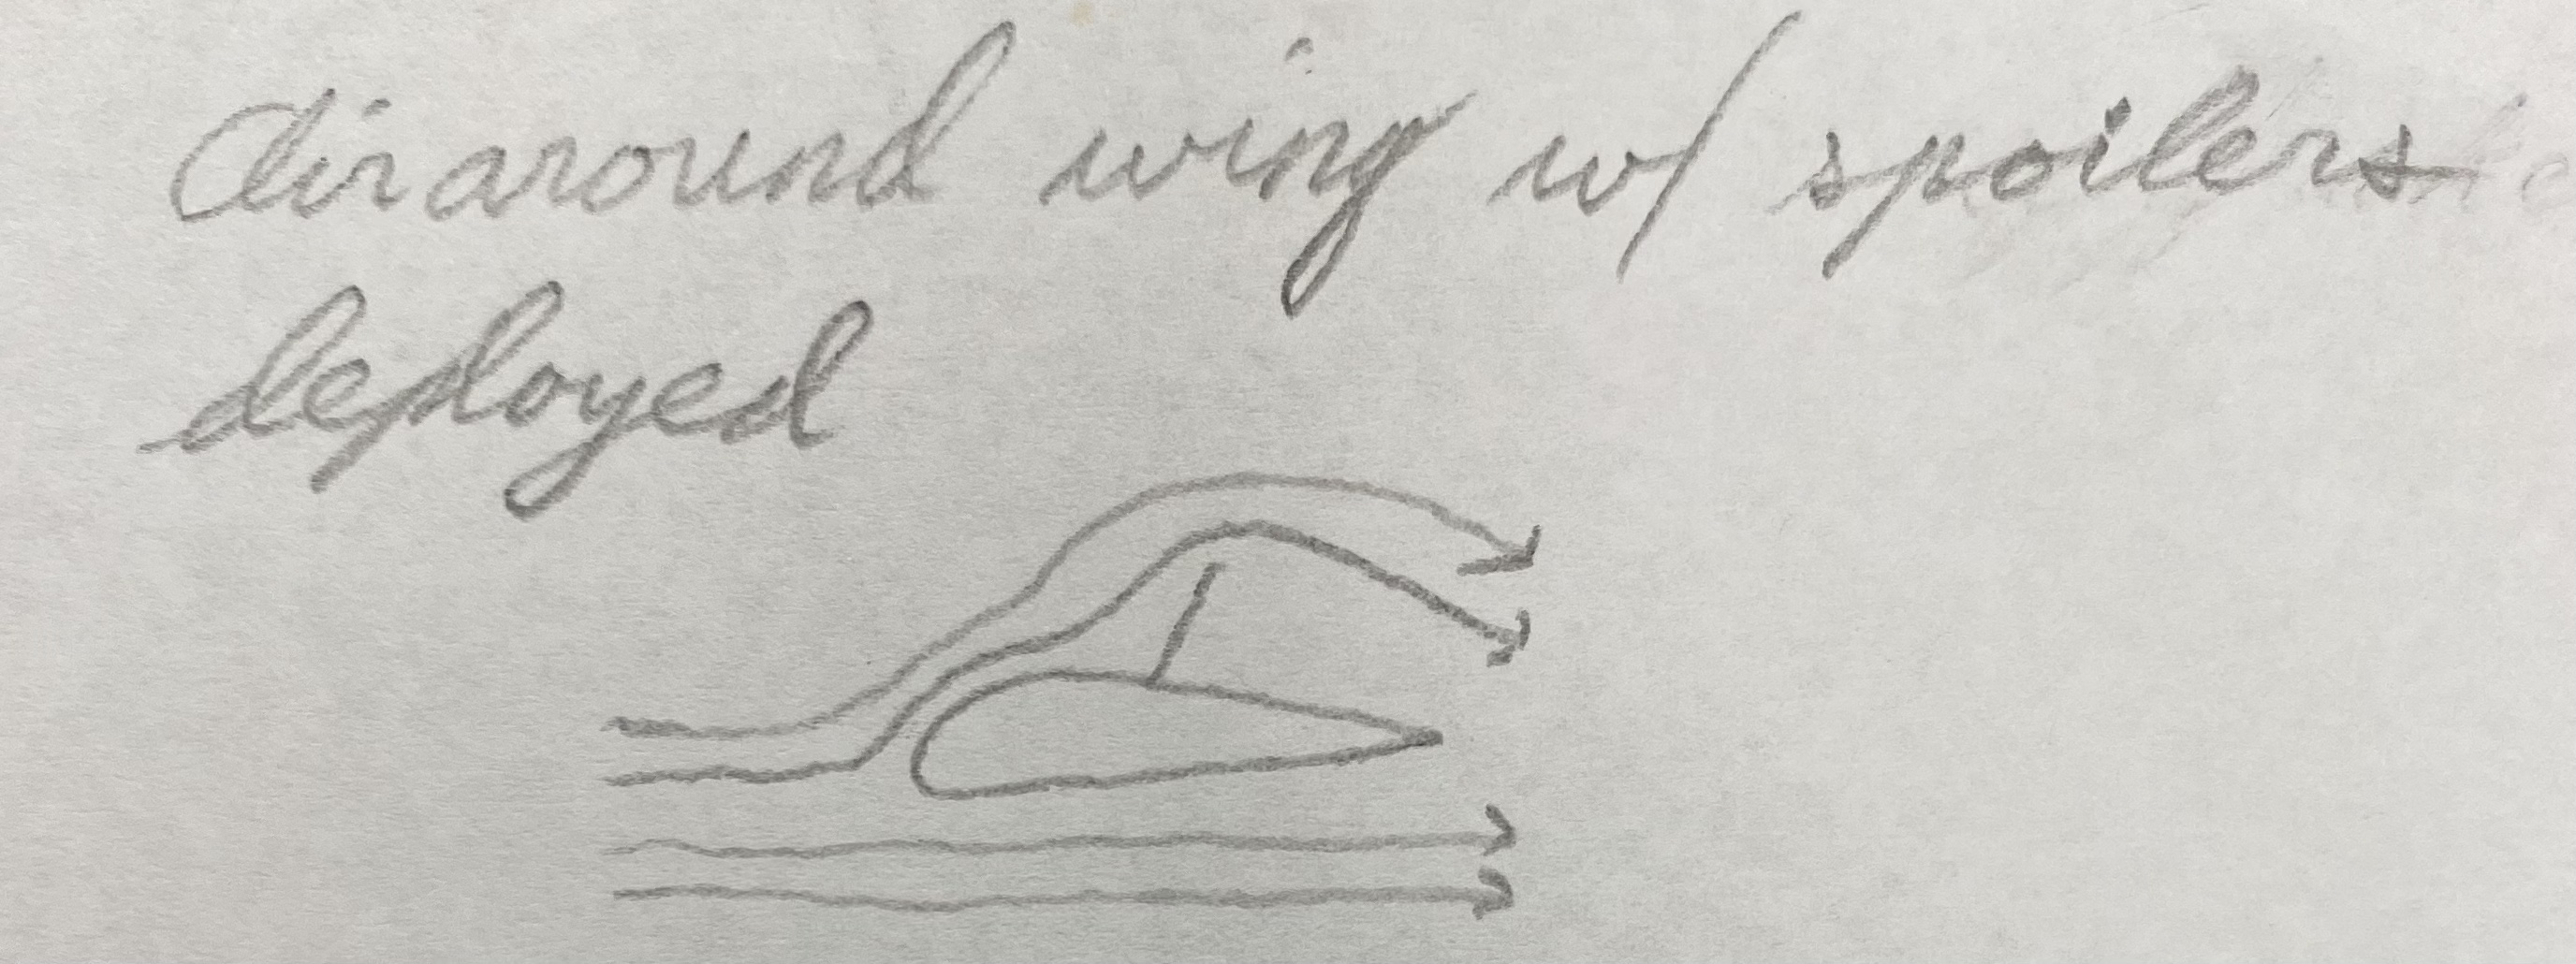 Air around wing w/ spoilers
deployed